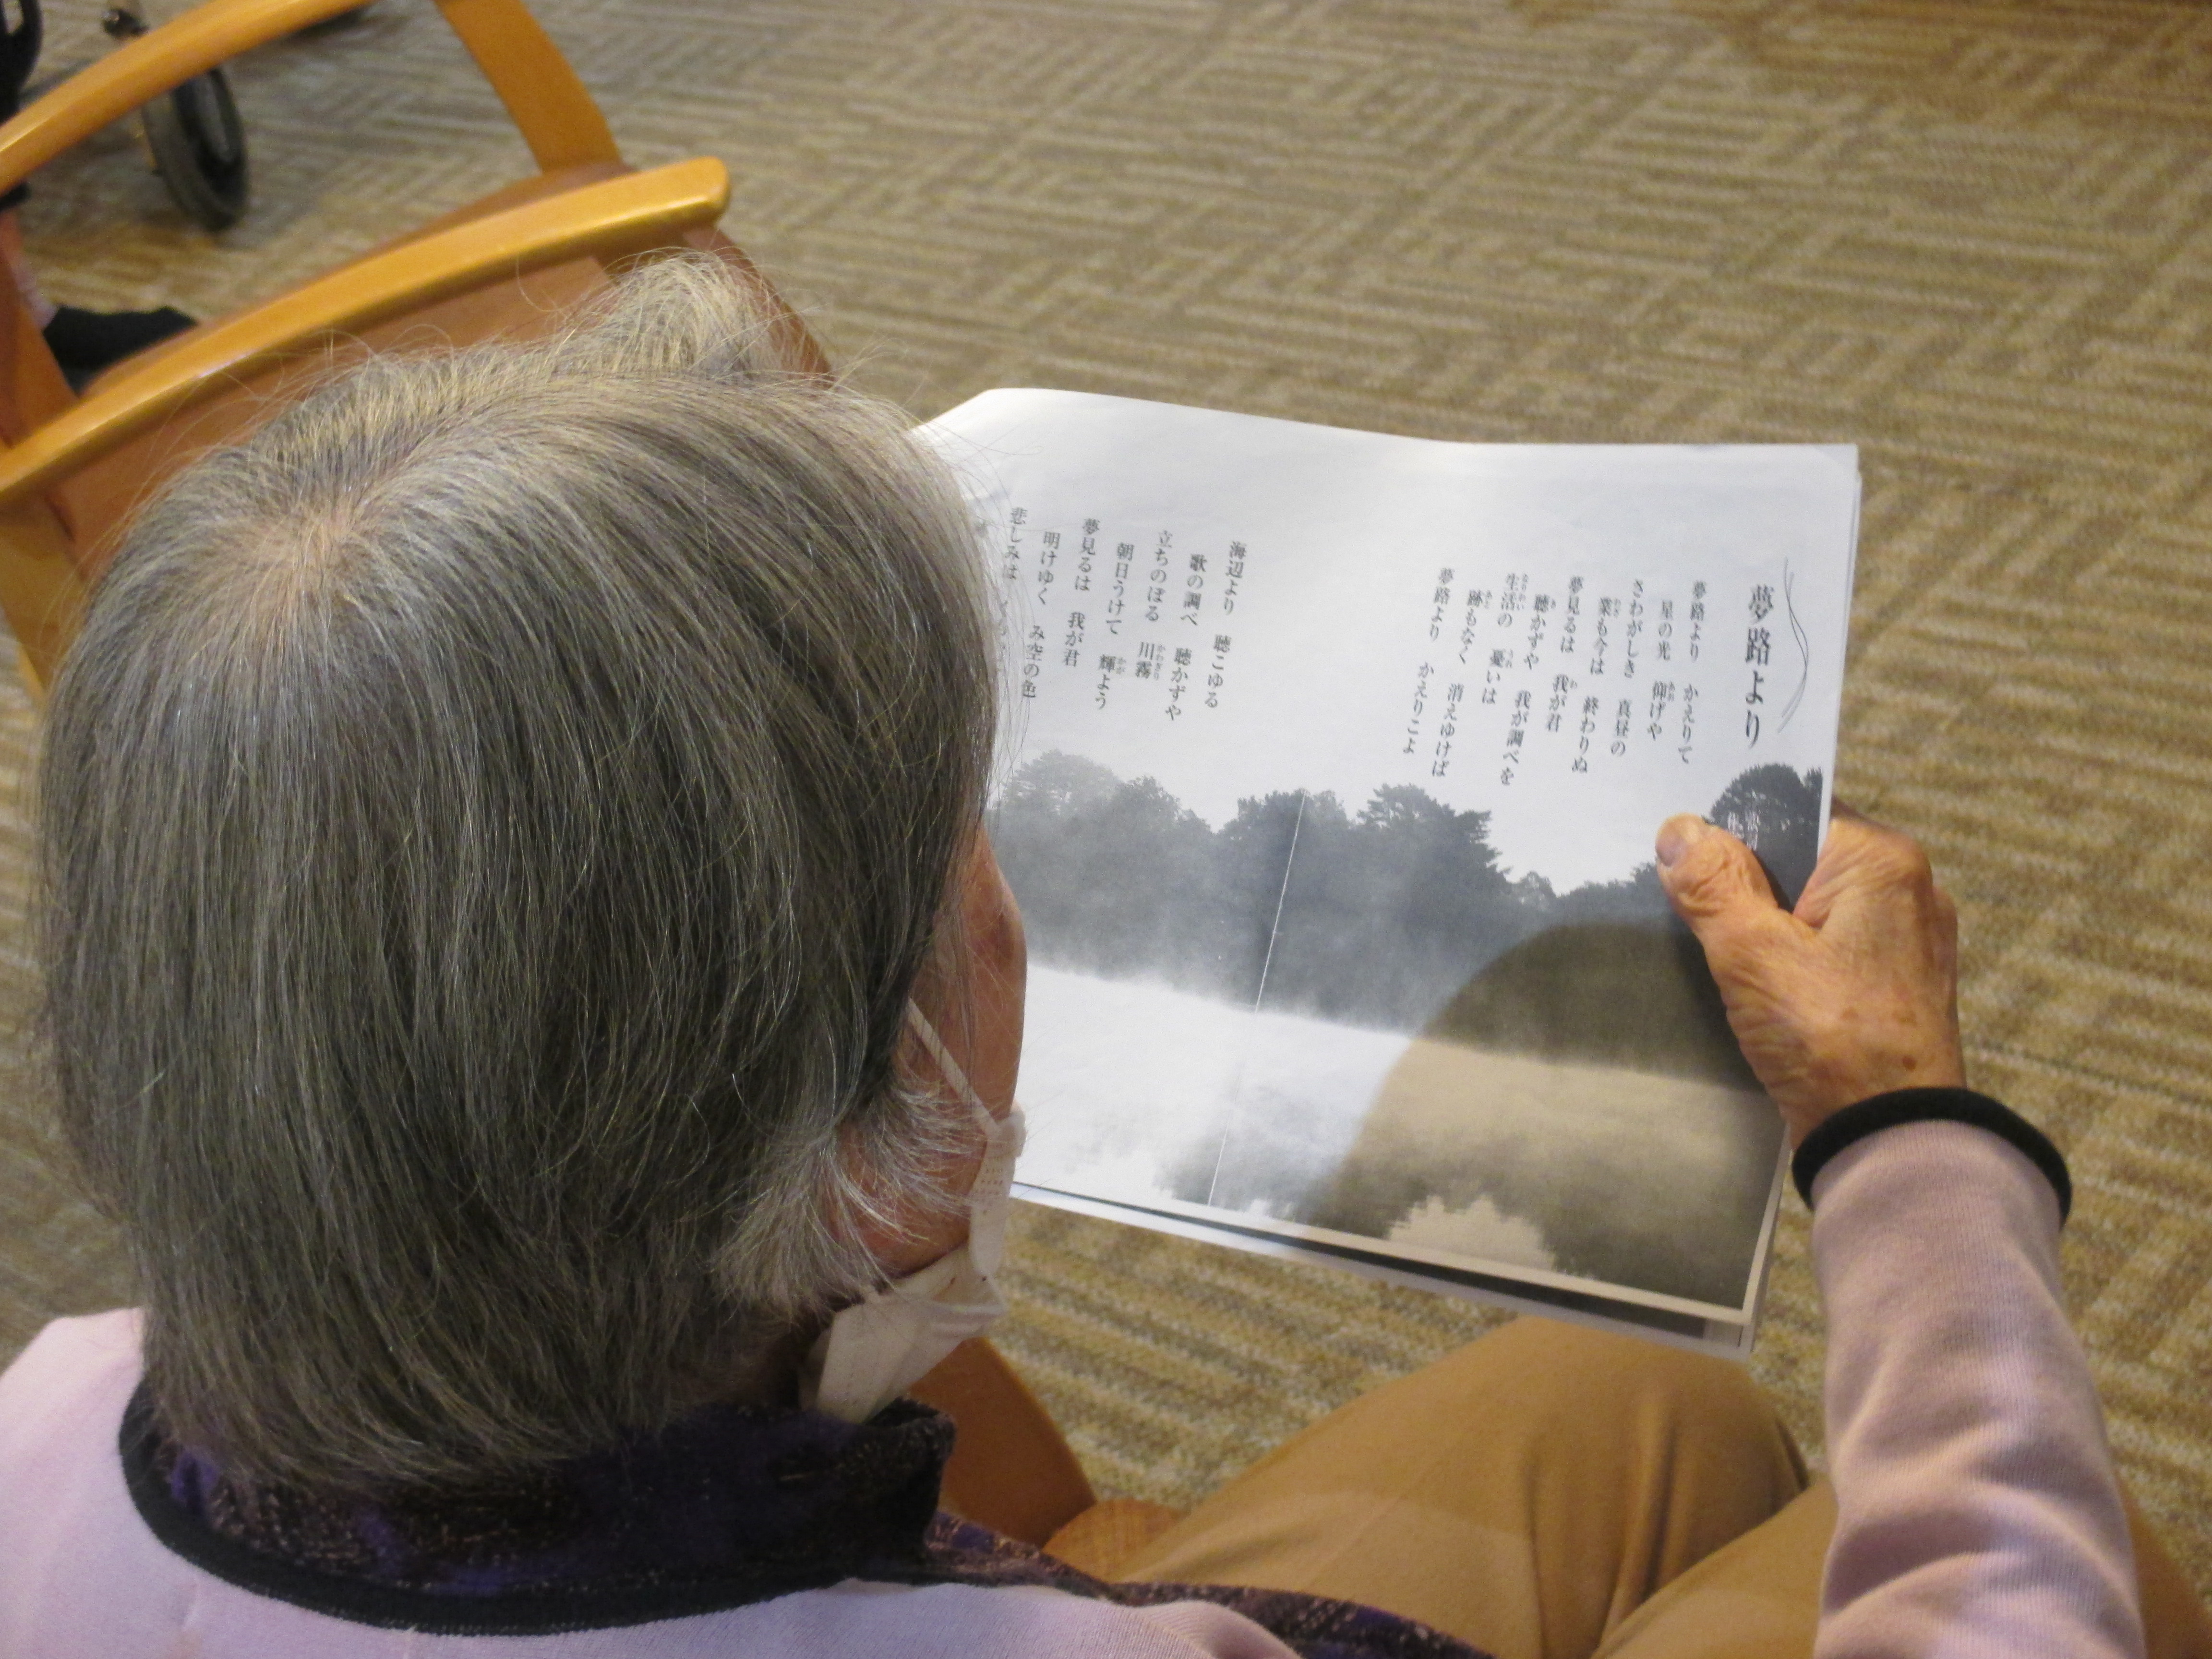 夢路より
夢路より　かえりて
星の光　仰げや
さわがしき　真昼の
業も今は　終わりぬ
夢見るは　我が君
聴かずや　我が調べを
生活の　憂いは
跡もなく　消えゆけば
夢路より　かえりこよ
海辺より　聴こゆる
歌の調べ　聴かずや
立ちのぼる　川霧
朝日うけて　輝よう
夢見るは　我が君
明けゆく　み空の色
悲しみは